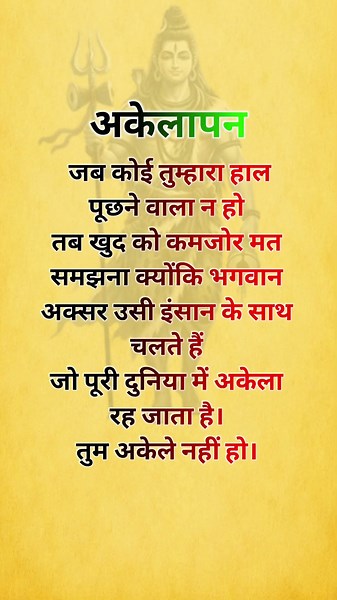 अकेलापन
जब कोई तुम्हारा हाल
पूछने वाला न हो
तब खुद को कमजोर मत
समझना क्योंकि भगवान
अक्सर उसी इंसान के साथ
चलते हैं
जो पूरी दुनिया में अकेला
रह जाता है।
तुम अकेले नहीं हो।